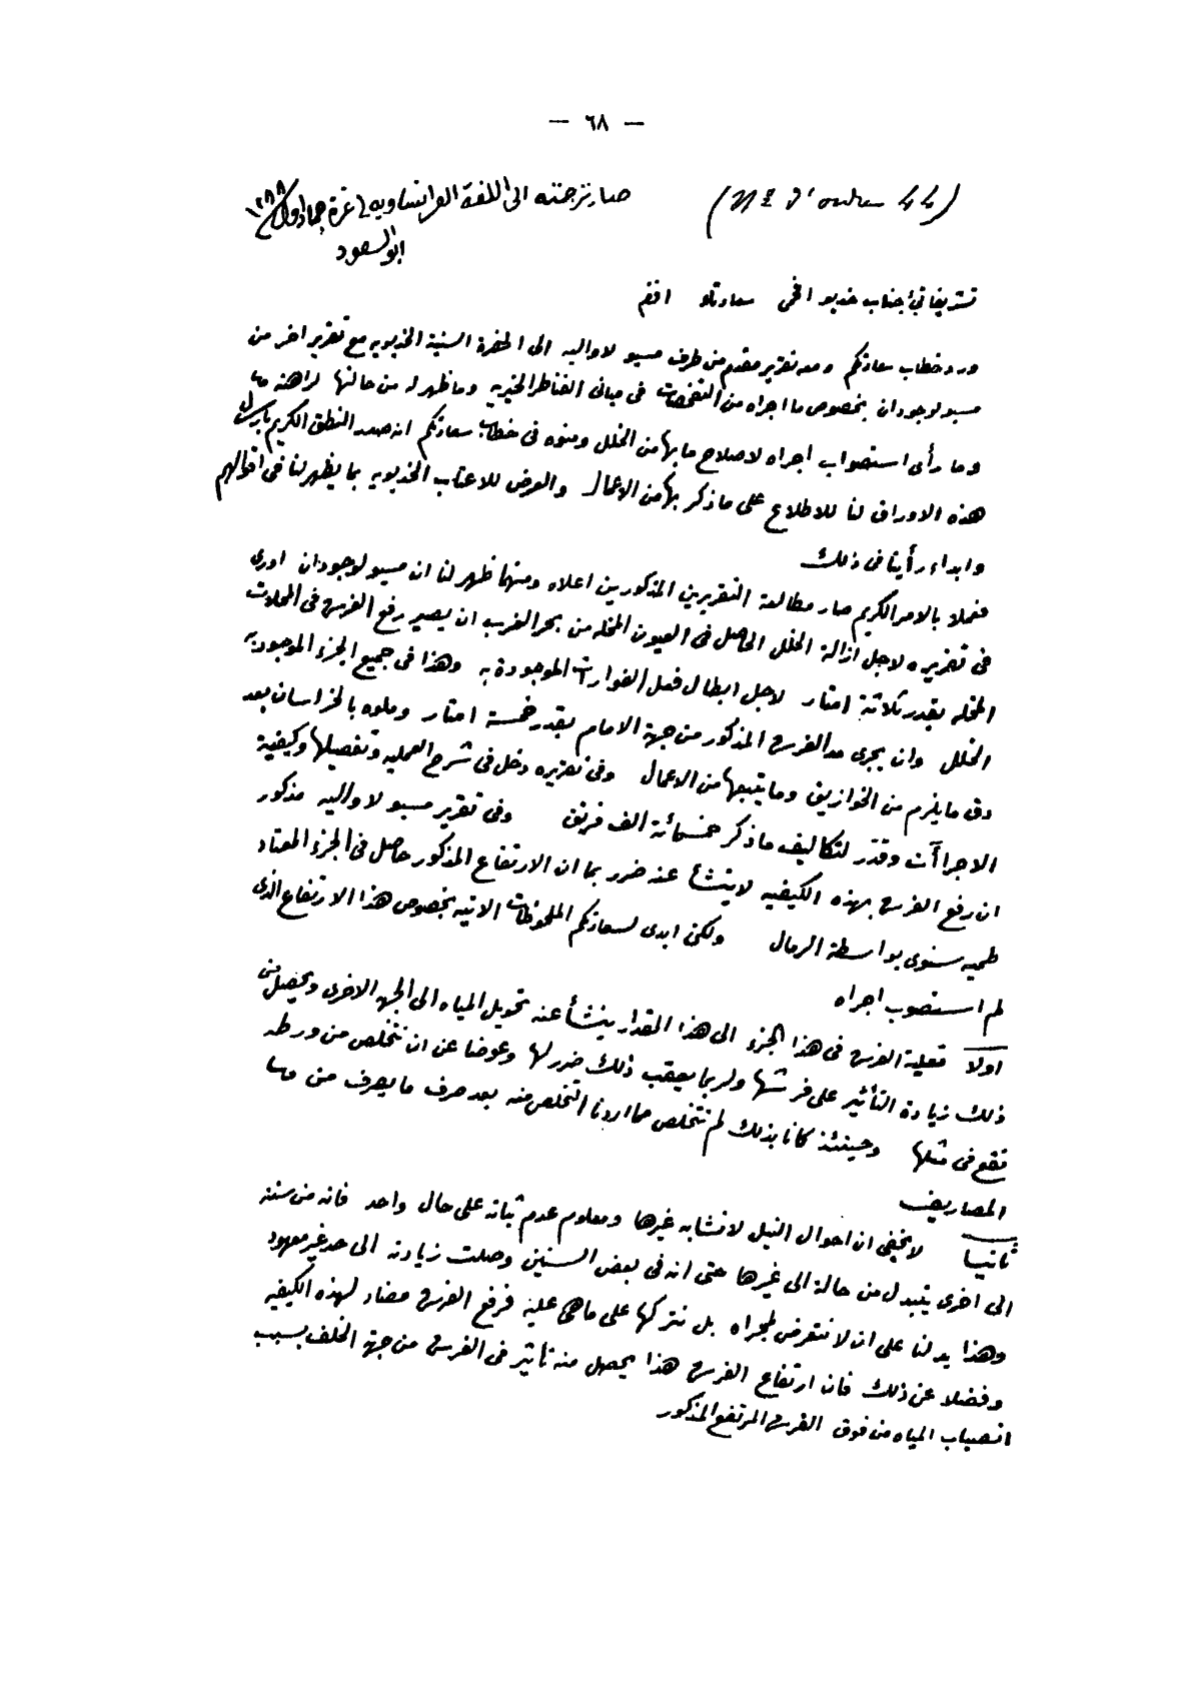 — ٦٨ —
(Nº d'ordre 44)
صار ترجمته الى اللغة الفرانساويه في غرة جماد اول ١٢٨٨
ابو السعود
تشريفاتئ جناب خديو افخمى سعادتلو افندم
ورد خطاب سعادتكم ومعه تقرير مقدم من طرف مسيو لاواليه الى الحضرة السنية الخديويه مع تقرير اخر من
مسيو لوجودان بخصوص ما اجراه من التفحصات فى مبانى القناطر الخيريه وما ظهر له من حالتها الراهنة
وما رأى استصواب اجراه لاصلاح ما بها من الخلل ومنوه فى خطاب سعادتكم انه صدر النطق الكريم بارسال
هذه الاوراق لنا للاطلاع على ما ذكر بها من الاعمال والعرض للاعتاب الخديويه بما يظهر لنا فى اقوالهم
وابداء رأينا فى ذلك
فعملا بالامر الكريم صار مطالعة التقريرين المذكورين اعلاه ومنهما ظهر لنا ان مسيو لوجودان اورى
فى تقريره لاجل ازالة الخلل الحاصل فى العيون المخله من بحر الغرب ان يصير رفع الفرش فى المحلات
المخله بقدر ثلاثة امتار لاجل ابطال فعل الفوارات الموجودة به وهذا فى جميع الجزء الموجود به
الخلل وان يجرى مد الفرش المذكور من جهة الامام بقدر خمسة امتار وملوه بالخراسان بعد
دق ما يلزم من الخوازيق وما يتبعها من الاعمال وفى تقريره دخل فى شرح العمليه وتفصيلها وكيفية
الاجراآت وقدّر لتكاليف ما ذكر خمسمائة الف فرنق وفى تقرير مسيو لاواليه مذكور
ان رفع الفرش بهذه الكيفيه لا ينشأ عنه ضرر بما ان الارتفاع المذكور حاصل فى الجزء المعتاد
طميه سنوى بواسطة الرمال ولكن ابدى لسعادتكم الملحوظات الاتيه بخصوص هذا الارتفاع الذى
لم استصوب اجراه
اولا تعلية الفرش فى هذا الجزء الى هذا المقدار ينشأ عنه تحويل المياه الى الجهة الاخرى ويحصل من
ذلك زيادة التأثير على فرشها ولربما يعقب ذلك ضررلها وعوضا عن ان نتخلص من ورطه
نقع فى مثلها وحينئذ كانا بذلك لم نتخلص مما اردنا التخلص منه بعد صرف ما يصرف من
المصاريف
ثانيا لا يخفى ان احوال النيل لا تشابه غيرها ومعلوم عدم ثباته على حال واحد فانه من سنة
الى اخرى يتبدل من حالة الى غيرها حتى انه فى بعض السنين وصلت زيادته الى حد غير معهود
وهذا يدلنا على ان لا نتعرض لمجراه بل نتركها على ما هى عليه فرفع الفرش مضاد لهذه الكيفيه
وفضلا عن ذلك فان ارتفاع الفرش هذا يحصل منه تأثير فى الفرش من جهة الخلف بسبب
انصباب المياه من فوق الفرش المرتفع المذكور